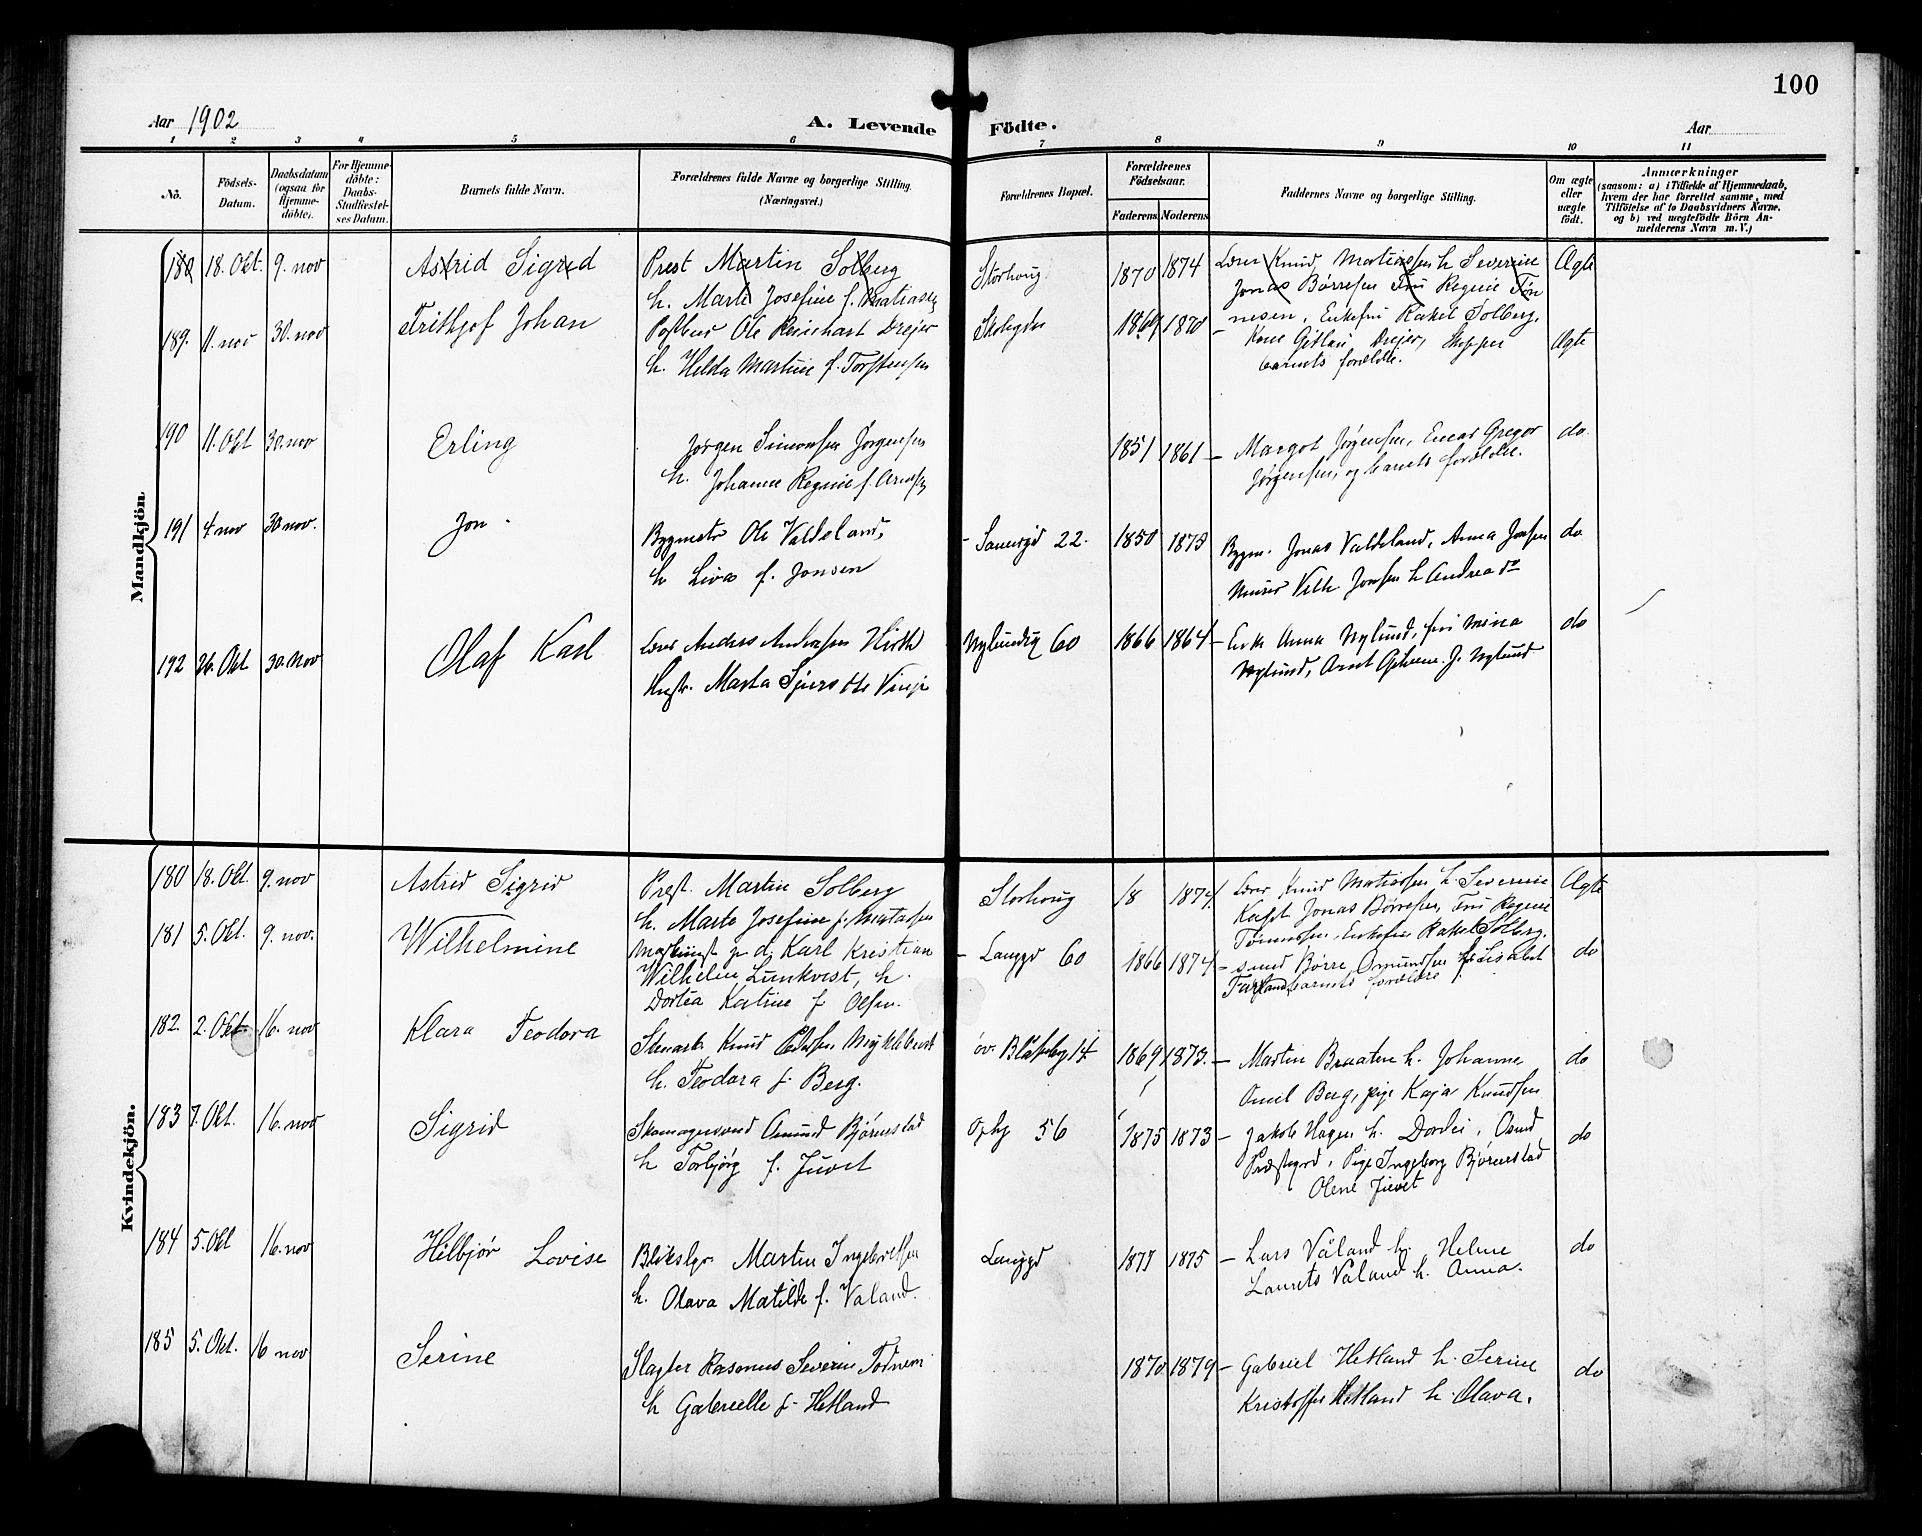 100
Aar 1902
A. Levende Födte.
Aar
1 2 3 4 5 6 7 8 9 10 11
No.
Födsels-Datum.
Daabsdatum (ogsaa for Hjemmedöbte).
For Hjemmedöbte: Daabs-Stadfæstelses Datum.
Barnets fulde Navn.
Forældrenes fulde Navne og borgerlige Stilling. (Næringsvei.)
Forældrenes Bopæl.
Forældrenes Födselsaar.
Faderens Moderens
Faddernes Navne og borgerlige Stilling.
Om ægte eller uægte födt.
Anmærkninger
(saasom: a) i Tilfælde af Hjemmedaab, hvem der har forrettet samme, med Tilföielse af to Daabsvidners Navne, og b) ved uægtefödte Börn Anmelderens Navn m. V.)
Mandkjön
180 18. Okt. 9. nov Astrid Sigrid Prest Martin Solberg Storhoug 1870 1874 Lærer Knud Matiassen h. Severine Ægte
h. Marte Josefine f. Matiasen Jonas Børresen Fru Regine Tønnesen, Enkefru Rakel Solberg.
189. 11. nov 30. nov Frithjof Johan Postbud Ole Reinehart Drejer 1870 Drejer, Ægte
h. Helda Martine f. Torstensen barnets forældre.
190 11. Okt 30. nov Erling Jørgen Simonsen Jørgensen 1851 1861 – Margot Jørgensen, Einar Gregor do.
h. Johanne Regine f. Jørgensen, og barnets forældre.
191 4 nov 30 nov. Jon. Bygmstr Ole Valdeland, 22. 1850 1873 Bygm. Jonas Valdeland, Anna Jonsen do
h Liva f. Jonsen Murer Vilh. Jonsen h Andrea do
192 26. Okt 30. Nov Olaf Karl Andreas Andreassen Hirth Nylundg 60 1866 1864 – Enke Anna Nylund, fru Mina do
Hustr. Marta Nylund, J. Nylund
Kvindekjön.
180 18. Okt. 9. nov Astrid Sigrid Prest. Martin Solberg Storhoug 18 1874. Lærer Knud Matiassen h. Severine Ægte
h. Marte Josefine f. Matiassen Kapt Jonas Børresen, Fru Regine
Tønnessen, Enkefru Rakel Solberg.
181 5. Okt. 9. nov. Wilhelmine Karl Kristian – Langgd 60 1866 1874 – Børre Omundsen Lisabet do
Wilhelm Lunkvist, h. barnets forældre
Dortea Katrine f Olsen.
182. 2. Okt 16. nov Klara Teodora Knud Myklebust øv. Blåsbg 14 1869 1873. – Martin Braaten h. Johanne do
h. Teodora f. Berg. Omel Berg, pige Kaja Knudsen
183 7. Okt. 16. nov Sigrid Skomagersvend Amund Bjørnestad 56 1875 1873 – Jakob Hagen h. Dortei, do
h Torbjørg f. Juvet Pige Ingeborg Bjørnestad
Olene Juvet
184 5. Okt 16. nov Hilbjør Lovise Blikslgr. Martin Ingebretsen Langgd 1877 1875 – Lars Våland h. Helene do
h. Olava Matilde f. Valand. Laurits Valand h. Anna.
185 5. Okt. 16 nov Serine Slagter Rasmus Severin 1870 1879 – Gabriel Hetland h. Serine do
h Gabrielle f. Hetland Kristoffer Hetland h. Olava.